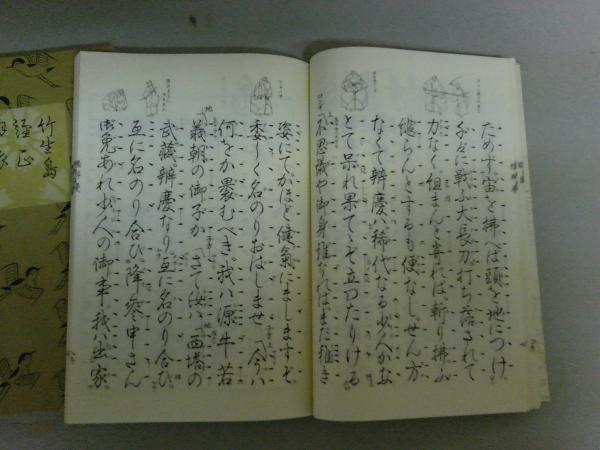 ためず宙を拂へば頭を地につけ
千々に戰ふ大長刀打ち落されて
力なく組まんと寄れば斬り拂ふ
縋らんとするも便なしせん方
なくて辨慶ハ稀代なる少人かな
とて呆れ果てゝぞ立つたりける
不思議や御身誰なればまだ稚き
姿にてかほど健氣にましますぞ
委しく名のりおはしませ 今ハ
何をか裹むべき。我ハ源牛若
義朝の御子か さて汝ハ西塔の
武藏辨慶なり 互に名のり合ひ
互に名のり合ひ。降參申さん
御免あれ少人の御事。我ハ出家
竹生島
經正